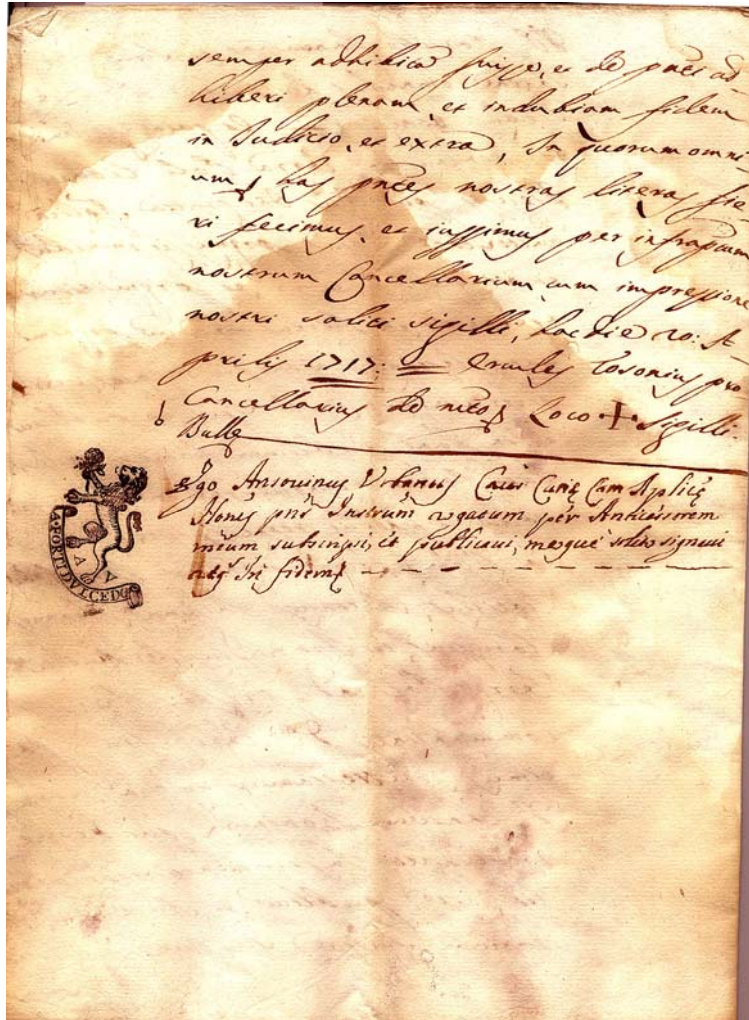 semper adhibitã fuisse, et de pñti ad
hiberi plenam, et indubiam fidem
in Iudicio, et extra, In quorum omni-
um has pñtes nostras literas fie-
ri fecimus, et iussimus per infraptum
nostrum Cancellarium cum impressione
nostri soliti sigilli, hac die 20: A-
prilis 1717: = Ercules Tosonius pro
Cancellarius de mto Loco + Sigilli.
Bulle
Ego Ansovinus Urbanus Curie Cam Aplice
Notus pñs Instrum rogatum per Antecessorem
meum subscripsi, et publicaui, meque solito signaui
fidem
A FORTI DVLCEDO
A V